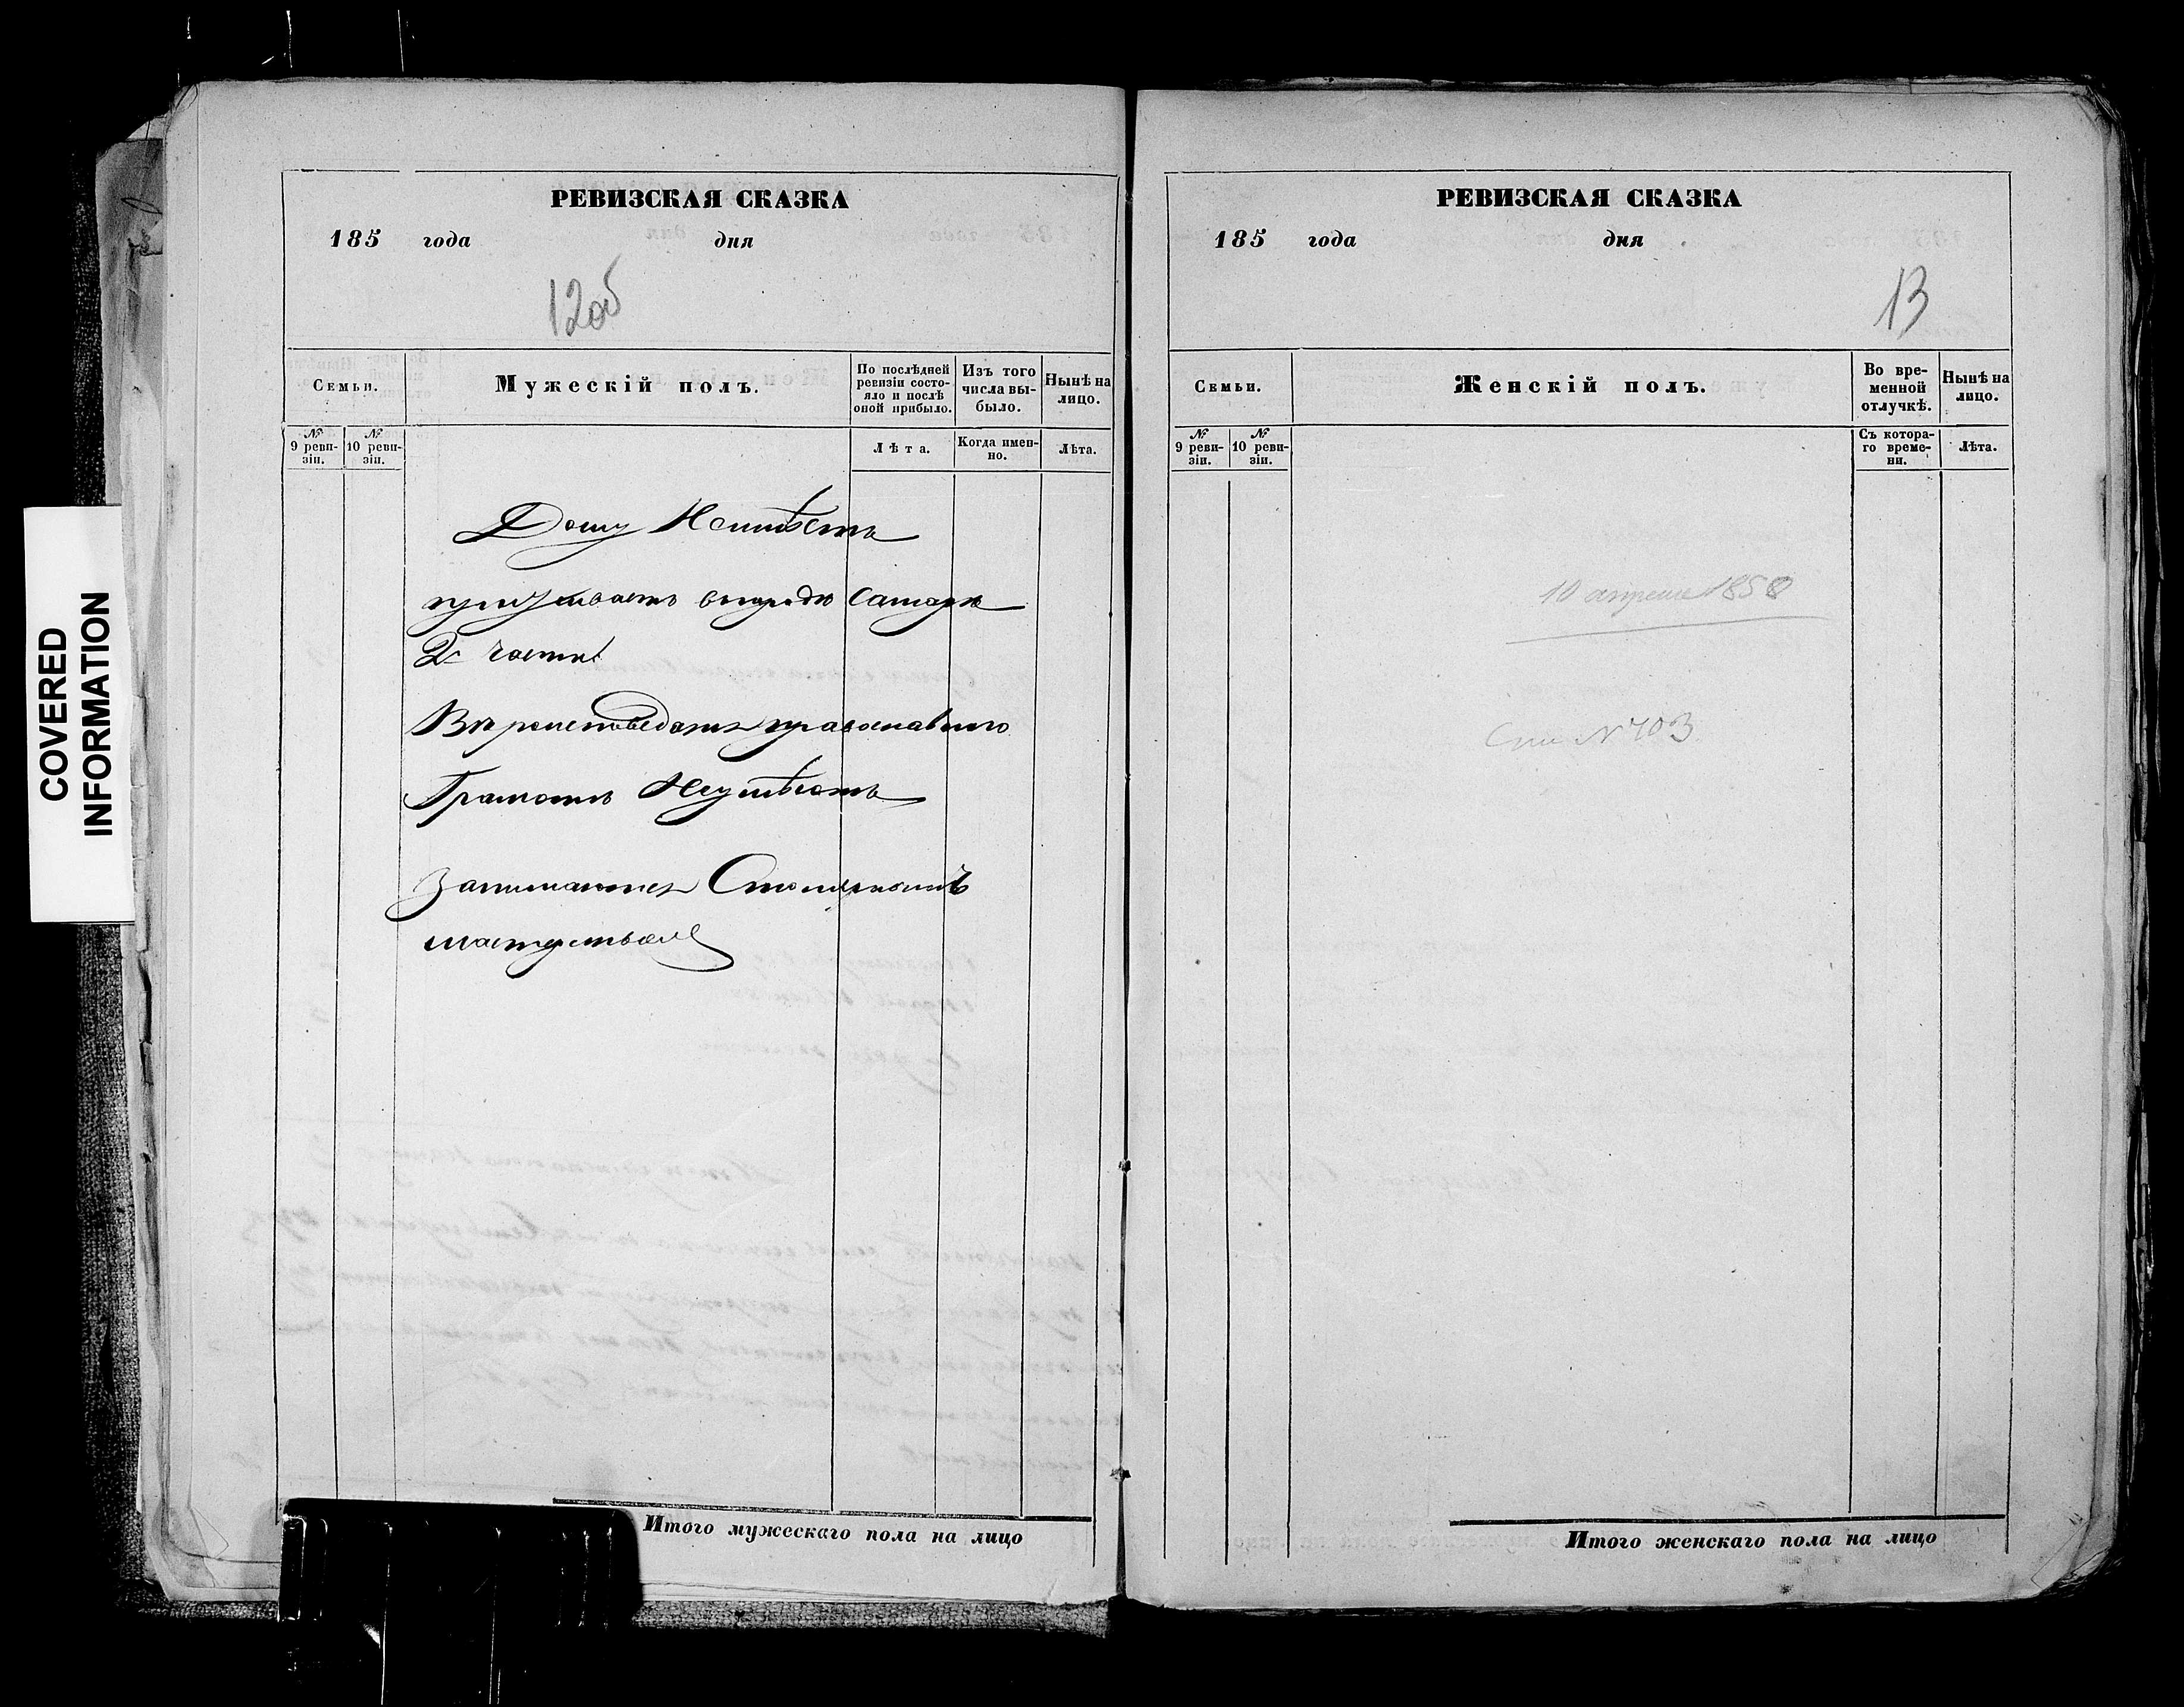 COVERED
INFORMATION
РЕВИЗСКАЯ СКАЗКА
185 года дня
12об
Семьи. Мужескій полъ. По послѣдней ревизіи состояло и послѣ оной прибыло. Изъ того числа выбыло. Нынѣ на лицо.
№ 9 ревизіи. № 10 ревизіи. Лѣта. Когда именно. Лѣта.
Дому Неимѣетъ
проживаетъ вгородѣ Самарѣ
2й части
Вѣроисповеданія православного
Грамотѣ Неумѣетъ
Занимается Столярнымъ
мастерствомъ
Итого мужескаго пола на лицо
РЕВИЗСКАЯ СКАЗКА
185 года дня
13
Семьи. Женскій полъ. Во временной отлучкѣ. Нынѣ на лицо.
№ 9 ревизіи. № 10 ревизіи. Съ котораго времени. Лѣта.
10 апреля 1858
№ 703
Итого женскаго пола на лицо